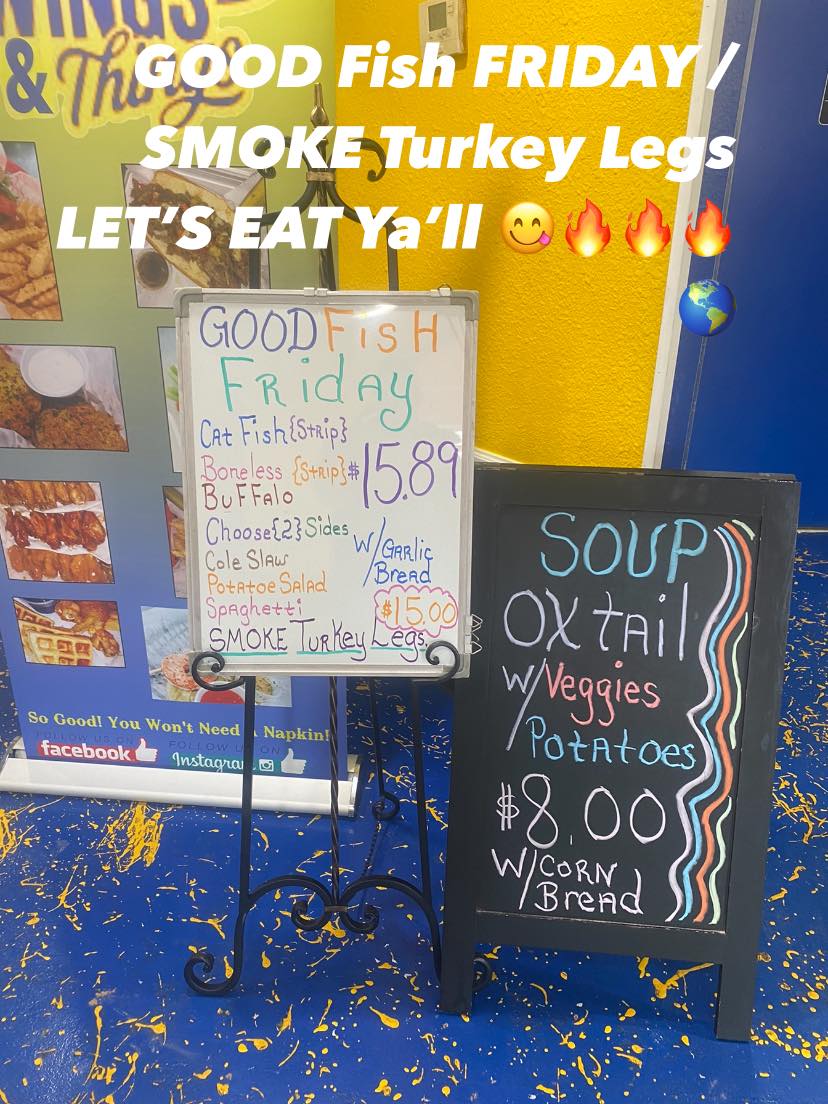 WINGS
& Things
GOOD Fish FRIDAY /
SMOKE Turkey Legs
LET’S EAT Ya’ll 😋🔥🔥🔥
🌎
GOOD FisH
FRidAY
CAt Fish {StRip}
Boneless {StRip} $15.89
BuFFAlo
Choose {2} Sides
W/GARlic
BreAd
Cole Slaw
PotAtoe SalAd
SpAghetti
$15.00
SMOKE TuRKey Legs
SOUP
OX tAil
W/Veggies
PotAtoes
$8.00
W/CORN
BreAd
So Good! You Won't Need A Napkin!
FOLLOW US ON
facebook
FOLLOW US ON
Instagram